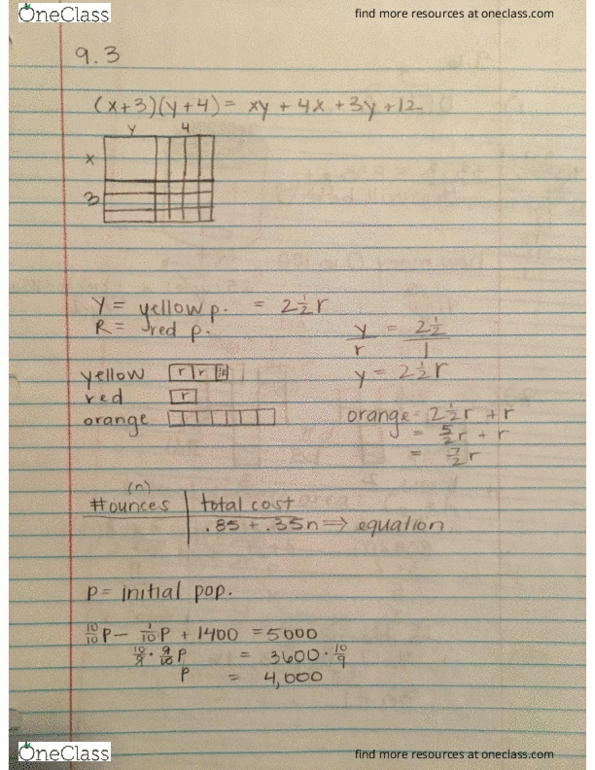 OneClass
find more resources at oneclass.com
9.3
(x+3)(y+4) = xy + 4x + 3y + 12
y 4
x
3
Y = yellow p. = 2½r
R = red p.
y/r = 2½/1
y = 2½r
yellow r r
red r
orange
orange = 2½r + r
= 5/2r + r
= 7/2r
(n)
#ounces total cost
.85 + .35n ⇒ equation
p = initial pop.
10/10p - 1/10p + 1400 = 5000
10/9 · 9/10p = 3600 · 10/9
p = 4,000
OneClass
find more resources at oneclass.com